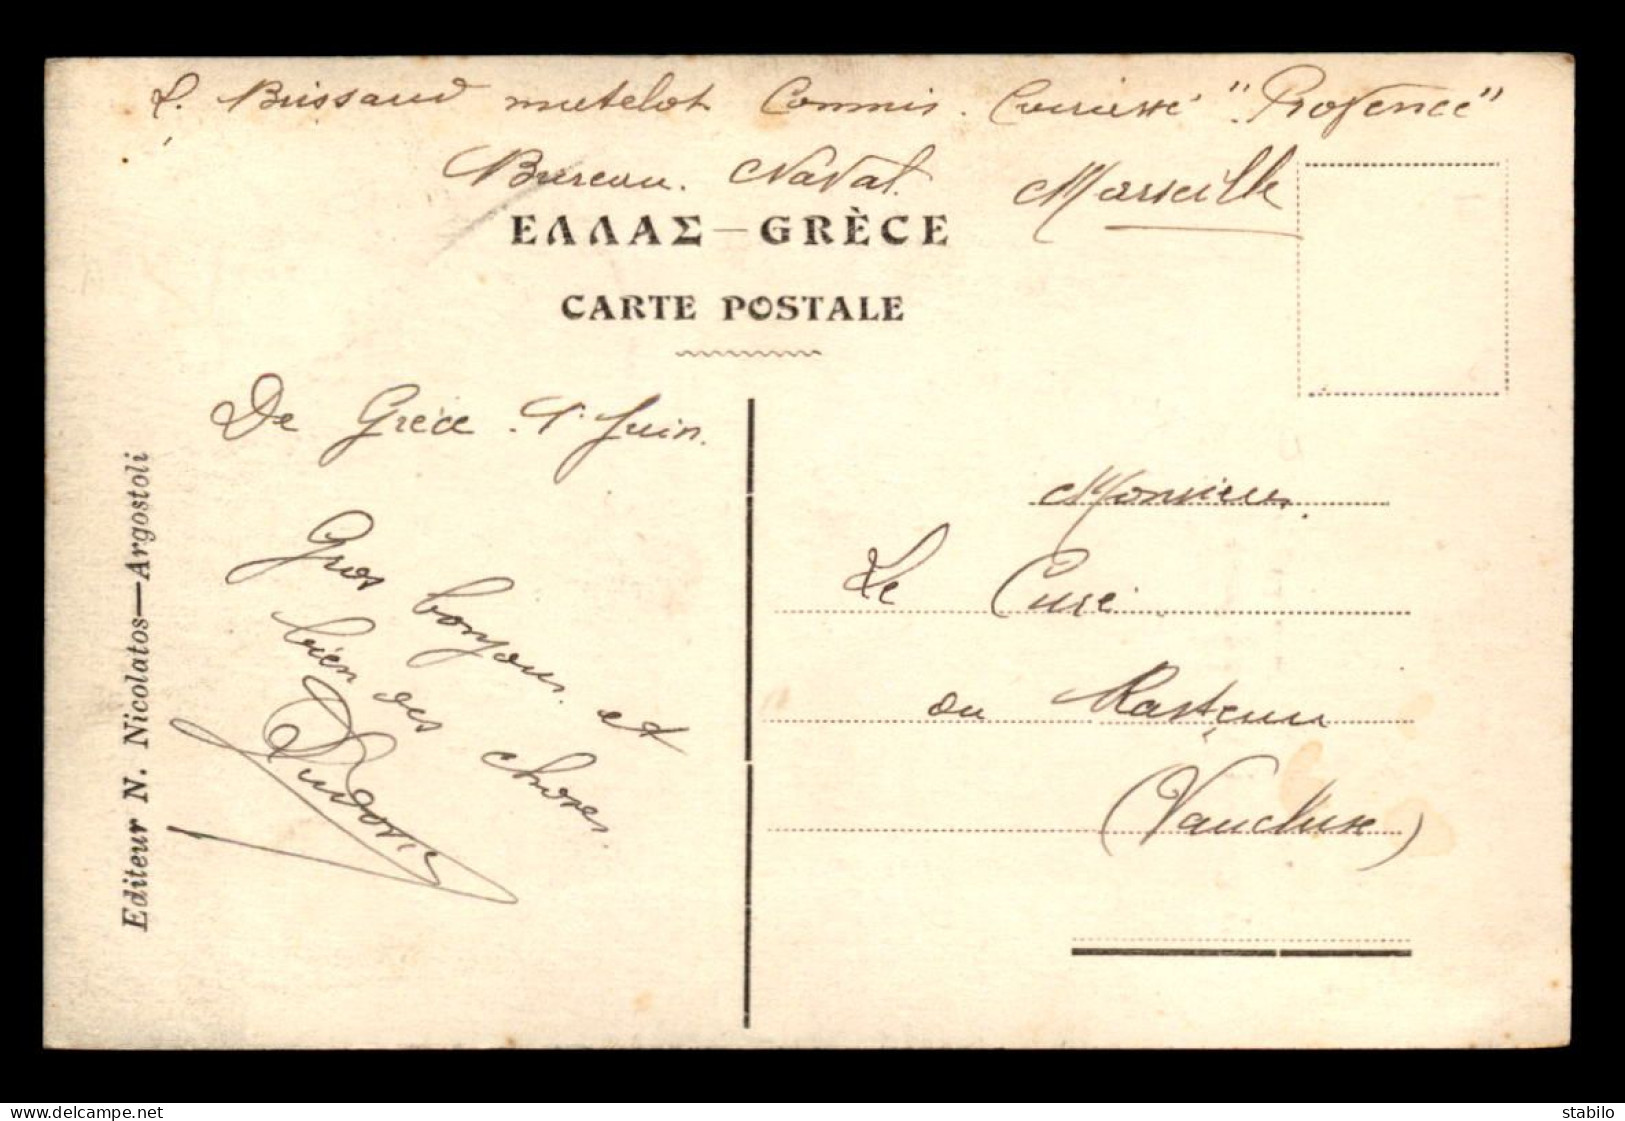 L. Brissaud matelot Commis. Cuirassé "Provence"
Bureau. Naval. Marseille
ΕΛΛΑΣ — GRÈCE
CARTE POSTALE
De Grèce. 1º Juin.
Gros bonjour et
bien des choses.
Ludovic
Editeur N. Nicolatos—Argostoli
Monsieur
Le Curé
du Rasteau
(Vaucluse)
delcampe.net
stabilo